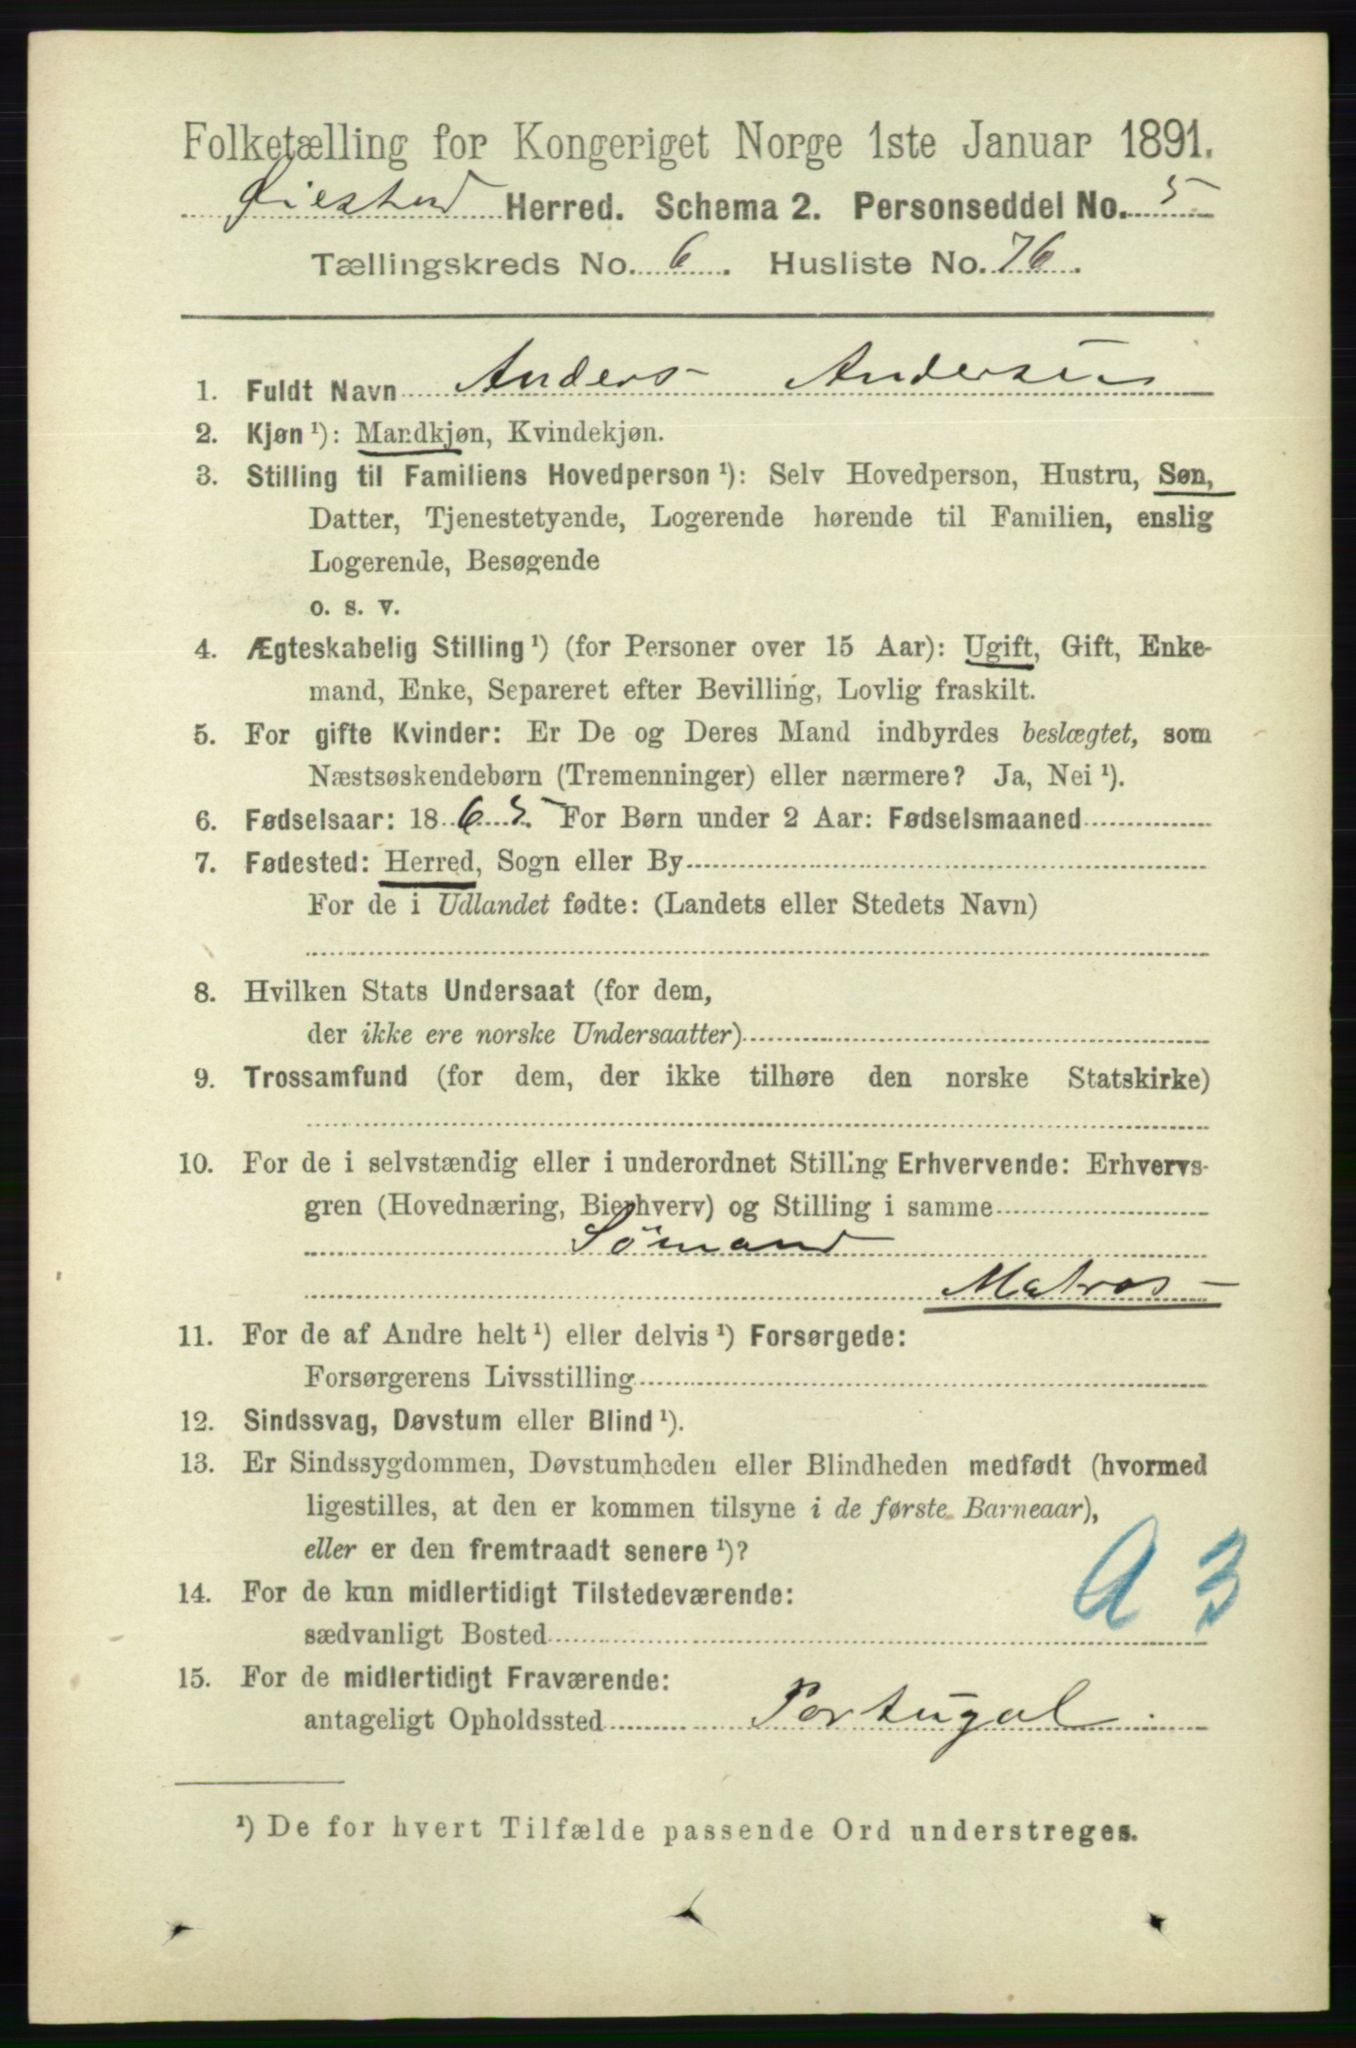 Folketælling for Kongeriget Norge 1ste Januar 1891.
Øiestad Herred. Schema 2. Personseddel No. 5
Tællingskreds No. 6. Husliste No. 76.
1. Fuldt Navn Anders Andersen
2. Kjøn ¹): Mandkjøn, Kvindekjøn.
3. Stilling til Familiens Hovedperson ¹): Selv Hovedperson, Hustru, Søn,
Datter, Tjenestetyende, Logerende hørende til Familien, enslig
Logerende, Besøgende
o. s. v.
4. Ægteskabelig Stilling ¹) (for Personer over 15 Aar): Ugift, Gift, Enke-
mand, Enke, Separeret efter Bevilling, Lovlig fraskilt.
5. For gifte Kvinder: Er De og Deres Mand indbyrdes beslægtet, som
Næstsøskendebørn (Tremenninger) eller nærmere? Ja, Nei ¹).
6. Fødselsaar: 1865. For Børn under 2 Aar: Fødselsmaaned
7. Fødested: Herred, Sogn eller By
For de i Udlandet fødte: (Landets eller Stedets Navn)
8. Hvilken Stats Undersaat (for dem,
der ikke ere norske Undersaatter)
9. Trossamfund (for dem, der ikke tilhøre den norske Statskirke)
10. For de i selvstændig eller i underordnet Stilling Erhvervende: Erhvervs-
gren (Hovednæring, Bierhverv) og Stilling i samme
Sömand
Matros
11. For de af Andre helt ¹) eller delvis ¹) Forsørgede:
Forsørgerens Livsstilling
12. Sindssvag, Døvstum eller Blind ¹).
13. Er Sindssygdommen, Døvstumheden eller Blindheden medfødt (hvormed
ligestilles, at den er kommen tilsyne i de første Barneaar),
eller er den fremtraadt senere ¹)?
A 3
14. For de kun midlertidigt Tilstedeværende:
sædvanligt Bosted
15. For de midlertidigt Fraværende:
antageligt Opholdssted Portugal.
¹) De for hvert Tilfælde passende Ord understreges.